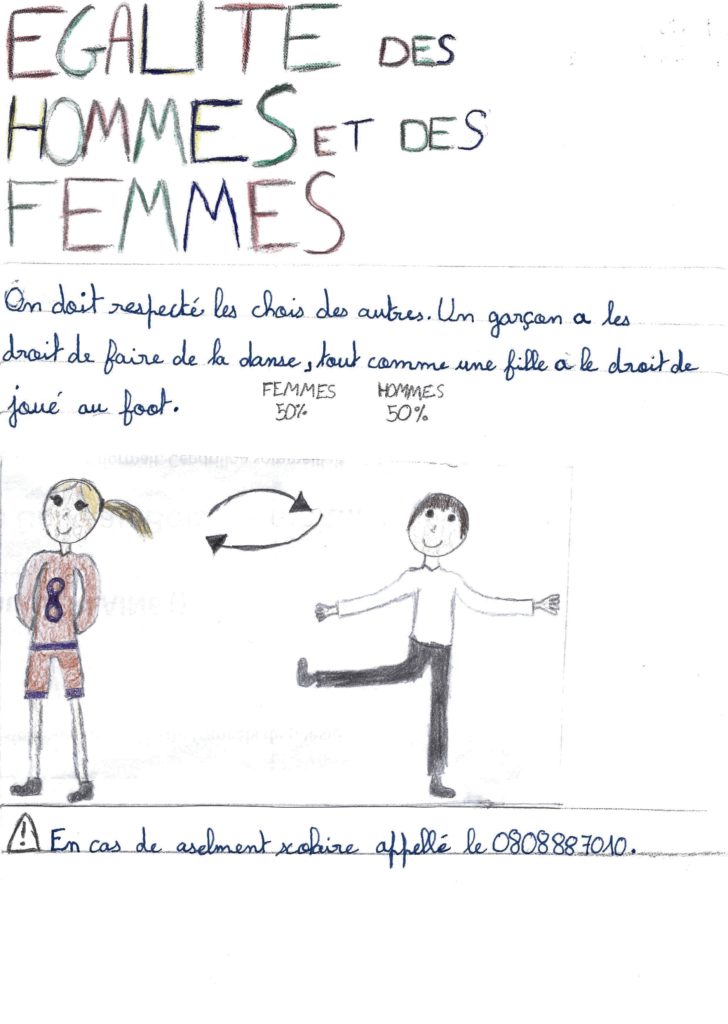 EGALITE DES
HOMMES ET DES
FEMMES
On doit respecté les chois des autres. Un garçon a les
droit de faire de la danse, tout comme une fille a le droit de
joué au foot.
FEMMES HOMMES
50% 50%
8
En cas de aselment scolaire appellé le 0808887010.